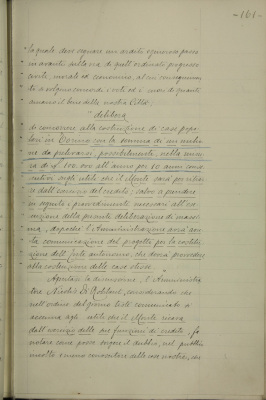 -161-
la quale deve segnare un ardito e generoso passo
in avanti sulla via di quell'ordinato progresso
civile, morale ed economico, al cui conseguimen-
to si volgono concordi i voti ed i cuori di quanti
amano il bene della nostra Città;
delibera
di concorrere alla costruzione di case popo-
lari in Torino con la somma di un milio-
ne da prelevarsi, possibilmente nella misu-
ra di L. 100.000 all'anno per 10 anni conse-
cutivi sugli utili che il Monte sarà per ritrar-
re dall'esercizio del credito; salvo a prendere
in seguito i provvedimenti necessari all'e-
secuzione della presente deliberazione di massi-
ma, dopoché l'Amministrazione avrà avu-
ta comunicazione del progetto per la costitu-
zione dell'Ente autonomo, che dovrà provvedere
alla costruzione delle case stesse.
Aperta la discussione, l'Amministra-
tore Nicolis Di Robilant, considerando che
nell'ordine del giorno testè comunicato si
accenna agli utili che il Monte ricava
dall'esercizio delle sue funzioni di credito, fa
notare come possa sorgere il dubbio, nel pubblico